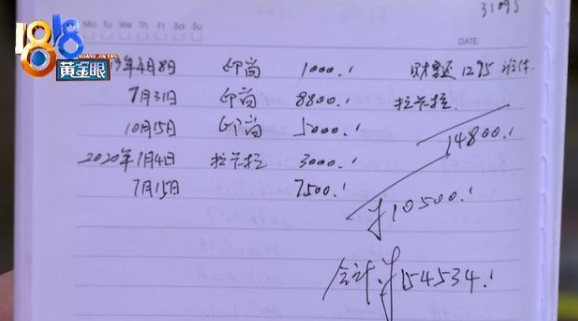 31095
Mo Tu We Th Fr Sa Su
DATE:
1818
黄金眼
年4月8日 印尚 1000.! 还1295
7月31日 印尚 8800.! 拉卡拉
10月15日 印尚 5000.! 14800.!
2020年1月4日 拉卡拉 3000.!
7月15日 7500.! ¥10500.!
合计¥154534.!